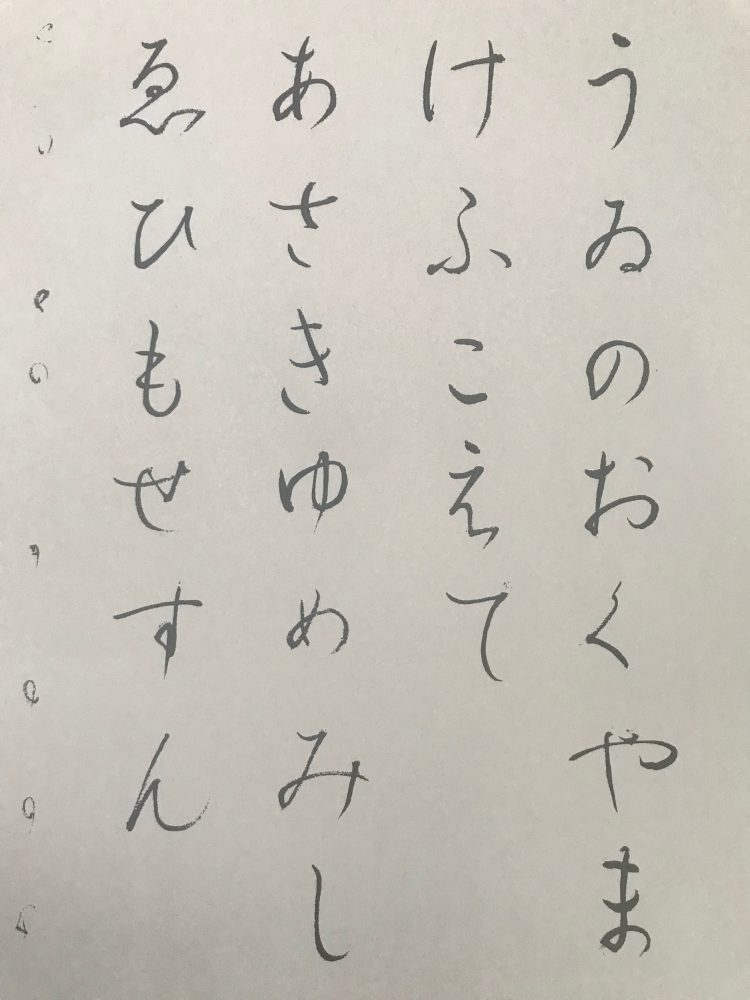 うゐのおくやま
けふこえて
あさきゆめみし
ゑひもせすん